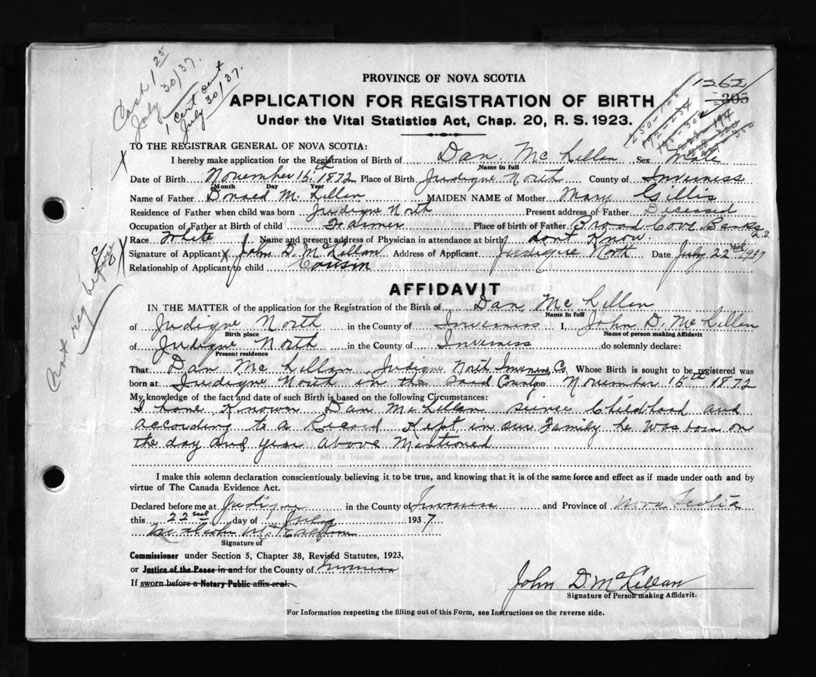 Cash 1 25
July 30/37.
1 cert sent
July 30/37.
1262
305
PROVINCE OF NOVA SCOTIA
APPLICATION FOR REGISTRATION OF BIRTH
Under the Vital Statistics Act, Chap. 20, R. S. 1923.
TO THE REGISTRAR GENERAL OF NOVA SCOTIA:
I hereby make application for the Registration of Birth of Dan Mc Lellan Sex Male
Name in full
Date of Birth November 15th 1872 Place of Birth Judique North County of Inverness
Month Day Year
Name of Father Donald Mc Lellan MAIDEN NAME of Mother Mary Gillis
Residence of Father when child was born Judique North Present address of Father Deceased
Occupation of Father at Birth of Child Farmer Place of Birth of Father Broad Cove Banks N.S.
Race White Name and present address of Physician in attendance at birth dont Know
Signature of Applicant X John D. McLellan Address of Applicant Judique North Date July 22nd 1937
Relationship of Applicant to child Cousin
Not reg before
AFFIDAVIT
IN THE MATTER of the application for the Registration of the Birth of Dan Mc Lellan
Name in full
of Judique North in the County of Inverness I, John D. Mc Lellan
Birth place Name of person making Affidavit
of Judique North in the County of Inverness do solemnly declare:
Present residence
That Dan Mc Lellan Judique North Inverness Co. Whose Birth is sought to be registered was
born at Judique North in the said County on November 15th 1872
My knowledge of the fact and date of such Birth is based on the following Circumstances:
I have Known Dan McLellan since Childhood and
according to a Record Kept in our Family he was born on
the day and year above Mentioned
I make this solemn declaration conscientiously believing it to be true, and knowing that it is of the same force and effect as if made under oath and by
virtue of The Canada Evidence Act.
Declared before me at Judique in the County of Inverness and Province of Nova Scotia
this 22nd day of July 1937
Malcolm
Signature of
Commissioner under Section 5, Chapter 38, Revised Statutes, 1923,
or Justice of the Peace in and for the County of Inverness
If sworn before a Notary Public affix seal.
John D. McLellan
Signature of Person making Affidavit.
For Information respecting the filling out of this Form, see Instructions on the reverse side.